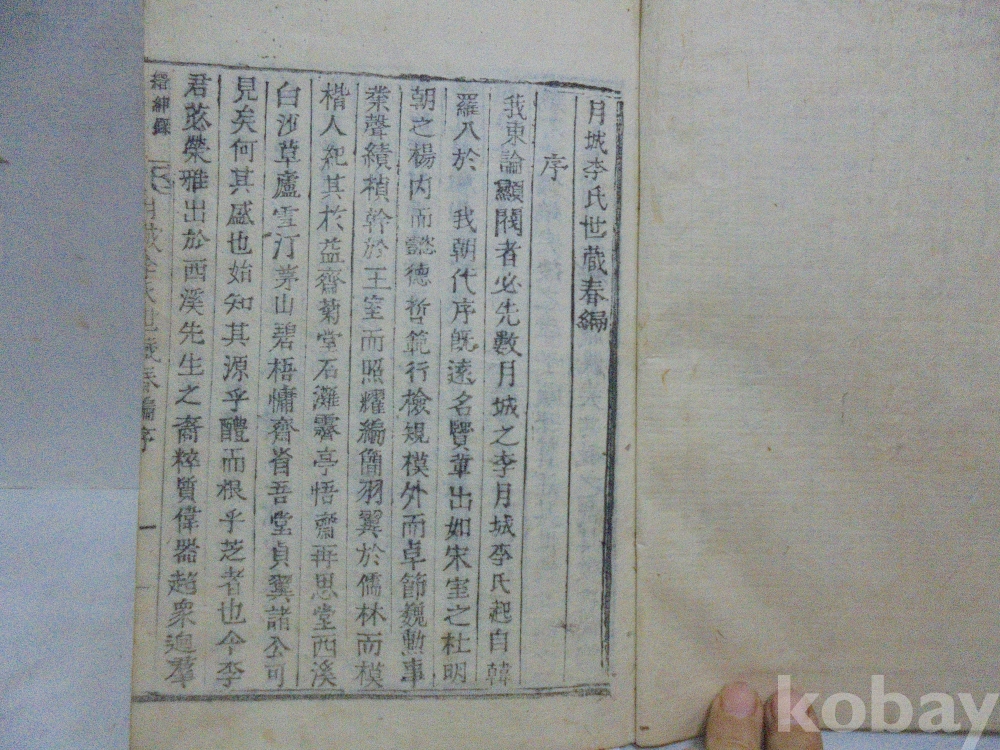 月城李氏世蕆春編
序
我東論顯閥者必先數月城之李月城李氏起自韓
羅入於 我朝代序旣遠名賢軰出如宋室之杜明
朝之楊內而懿德哲範行檢規模外而卓節巍勲事
業聲績楨幹於王室而照耀編簡羽翼於儒林而模
楷人紀其於益齋菊堂石灘霽亭悟齋再思堂西溪
白沙草廬雪汀茅山碧梧慵齋省吾堂貞翼諸公可
見矣何其盛也始知其源乎醴而根乎芝者也今李
君 榮雅出於西溪先生之裔粹質偉器超衆逈羣
搢紳錄
月城李氏世蕆春編序 一
kobay